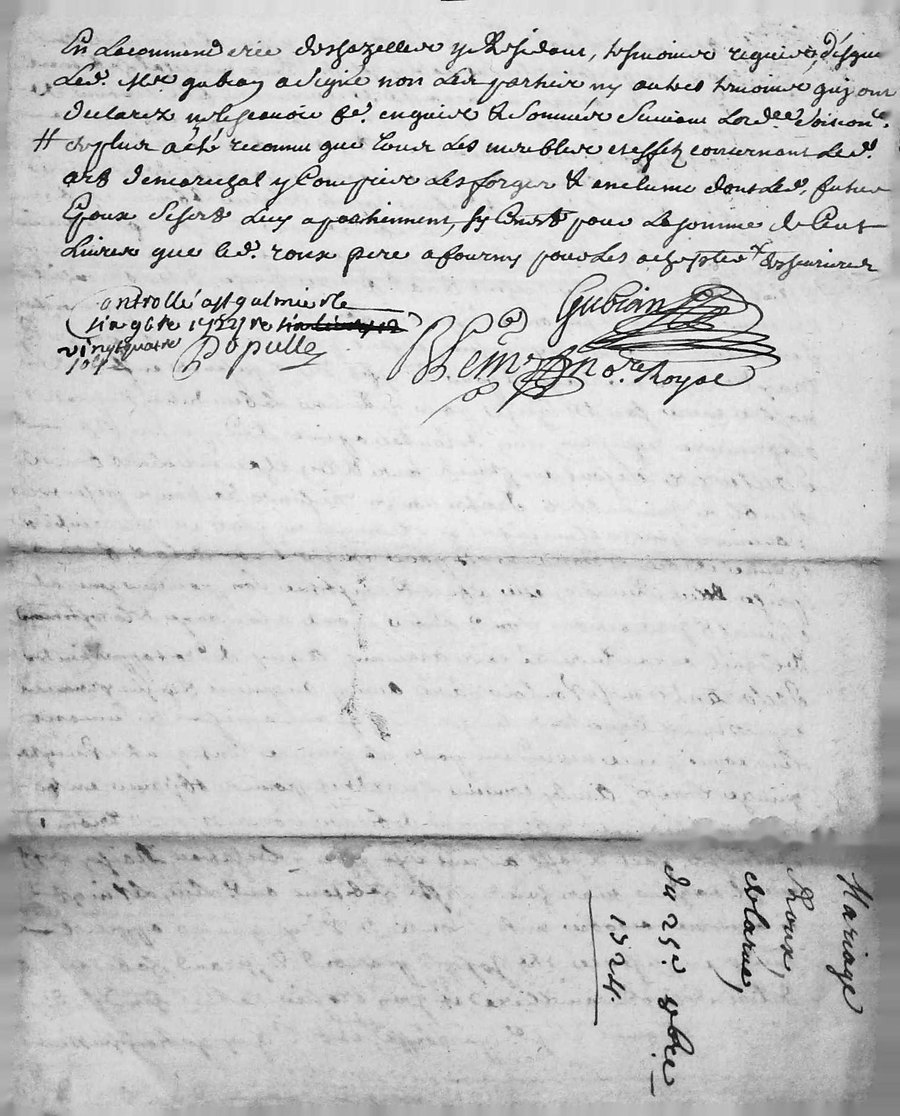 En la commenderie des hazelles y Residant, tesmoins requis, desquels
Led. Mre gubian a signé non les parties ny autres tesmoins quj ont
declarez ne le scavoir de. enquis et sommés suivant
# et plus a été reconnu que tous les meubles et effetz concernant Led.
art de marechal y Compris les forges et enclume dont Led. futur
Epoux se sert Luy apartiennent, pour la somme de Cent
Livres que led. roux pere a fourny pour les
Controllé a st galmier le
vingt quatre
Populle
Gubian
nore. Royal
Mariage
Roux,
et larue,
du 25e. 8bre
1724.